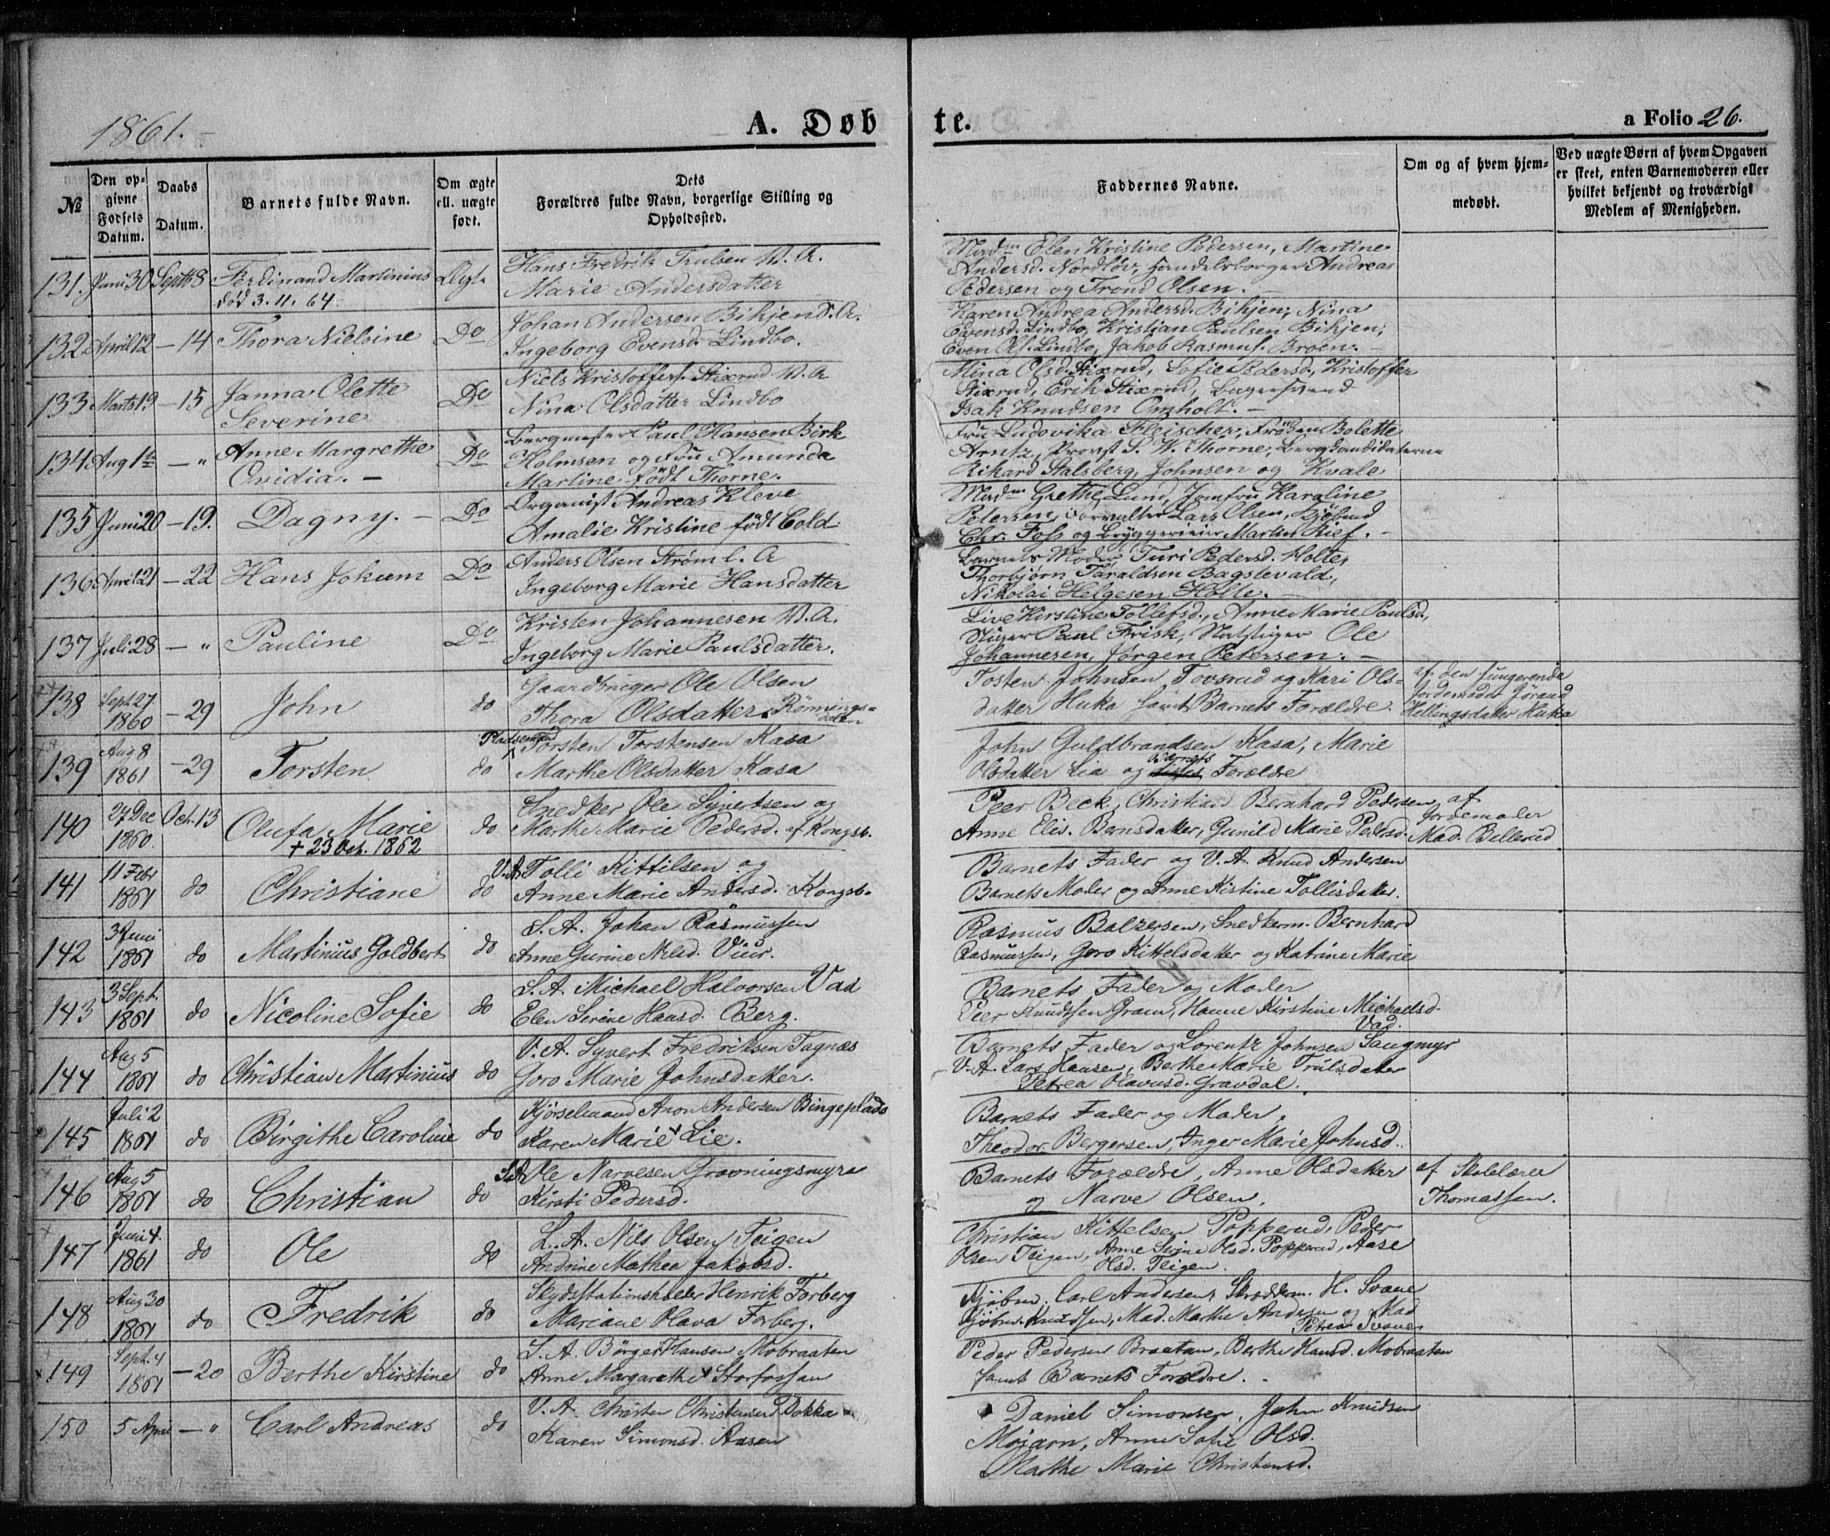 1861.
A. Døb
te.
a Folio 26.
№
Den opgivne Fødsels Datum.
Daabs Datum.
Barnets fulde Navn.
Om ægte ell. uægte født.
Dets Forældres fulde Navn, borgerlige Stilling og Opholdssted.
Faddernes Navne.
Om og af hvem hjemmedøbt.
Ved uægte Børn af hvem Opgaven er skeet, enten Barnemoderen eller hvilket bekjendt og troværdigt Medlem af Menigheden.
131. Juni 30 Septb 8 Ferdinand Martinius Ægte Hans Fredrik Truben V. A.
død 3.11.64. Marie Andersdatter
Madm Elen Kristine Pedersen, Martine
Andersd. Nordløv, Handelsborger Andreas
Pedersen og Trond Olsen.
132 April 12 – 14 Thora Nielsine Do Johan Andersen Bikjen S. A.
Ingeborg Evensd. Lindbo.
Karen Andrea Andersd. Bikjen, Nina
Evensd. Lindbo, Kristian Paulsen Bikjen,
Even Ols. Lindbo, Jakob Rasmus. Broen. –
133 Marts 19 – 15 Janna Olette Do Niels Kristoffers. Stixrud V. A
Severine Nina Olsdatter Lindbo
Mina Olsd. Stixrud, Sofie Pedersd., Kristoffer
Stixrud, Erik Stixrud, Lagersvend
Isak Knudsen Omholt. –
134 Aug 1ste – " Anne Margrethe Do Bergmester Paul Hansen Birk
Ovidia. – Holmsen og Fru Amunda
Martine født Thorne.
Fru Ludovika Fleischer, Frøken Bolette
Arntz, Provst S. W. Thorne, Bergkandidaterne
Rikard Stalsberg, Johnsen og Kvale
135 Juni 20 – 19. Dagny. – Do Organist Andreas Kleve
Amalie Kristine født Cold
Madm Grethe Lund, Jomfru Karoline
Petersen, Forvalter Lars Olsen, Kjøbmd
Chr. Foss og Bryggerieier Martin Kief. –
136 April 21 – 22 Hans Jokum Do Anders Olsen Strøm L. A
Ingeborg Marie Hansdatter
Barnets Moder Turi Pedersd. Holte,
Thorbjørn Taraldsen Bagstevald,
Nikolai Helgesen Holte. –
137 Juli 28 – " Pauline Do Kristen Johannesen V. A.
Ingeborg Marie Paulsdatter.
Live Kirstine Tollefsd., Anne Marie Paulsd,
Stiger Paul Frisk, Natstiger Ole
Johannesen, Jørgen Petersen. –
138 Sept. 27 1860 – 29 John do Gaardbruger Ole Olsen
Thora Olsdatter Rönningsdalen
Tosten Johnsen Tovsrud og Kari Olsdatter
Huka samt Barnets Forældre.
af den fungerende
Jordemoder Jörand
Hellingsdatter Huka
139 Aug 8 1861 – 29 Torsten do Pladsemand Torsten Torstensen Kasa
Marthe Olsdatter Kasa
John Guldbrandsen Kasa, Marie
Olsdatter Lia og Barnets Forældre
140 27 Dec 1860 Oct. 13 Olufa Marie do Snedker Ole Syvertsen og
+ 23 Oct. 1862 Marthe Marie Pedersd. af Kongsb.
Peer Beck, Christian Bernhard Pedersen
Anne Elis. Bensdatter, Gunild Marie Pedersd.
af Jordemoder
Mad. Bellerud
141 11 Febr 1861 do Christiane do V. A. Tolli Kittilsen og
Anne Marie Andersd. Kongsb.
Barnets Fader og V. A. Knud Andersen
Barnets Moder og Anne Kistine Tollisdatter.
142 3 Juni 1861 do Martinius Goldbert do S. A. Johan Rasmussen
Anne Gurine Nilsd. Viur.
Rasmus Balzersen, Snedkerm. Bernhard
Rasmussen, Goro Kittelsdatter og Katrine Marie
143 3 Sept. 1861 do Nicoline Sofie do S. A. Michael Halvorsen Vad
Elen Serine Hansd. Berg.
Barnets Fader og Moder
Peer Knudsen Graen, Hanne Kirstine Michaelsd.
Vad.
144 Aug 5 1861 do Christian Martinius do V. A. Syvert Fredriksen Tagnæs
Goro Marie Johnsdatter.
Barnets Fader og Lorentz Johnsen Saugmyr
V. A. Lars Hansen, Berthe Marie Trulsdatter
Petrea Olavusd. Gravdal.
145 Juli 2 1861 do Birgithe Caroline do Kjörselmand Anon Andersen Bingeplads
Karen Marie Lie.
Barnets Fader og Moder.
Theodor Bergersen, Inger Marie Johnsd.
146 Aug 5 1861 do Christian do S. A. Ole Narvesen Gravningsmyra
Kirsti Pedersd.
Barnets Forældre, Anne Olsdatter
og Narve Olsen.
af Skolelærer
Thomassen.
147 Juni 4 1861 do Ole do L. A. Nils Olsen Teigen
Andrine Mathea Jakobsd.
Christian Kittelsen Popperud, Peder
Olsen Teigen, Anne Serine Olsd. Popperud, Aase
Olsd. Teigen.
148 Aug 30 1861 do Fredrik do Skydsstationsholder Henrik Forberg
Mariane Olava Forberg.
Kjöbm. Carl Andersen, Skrædderm. H. Svane
Kjöbm. Knudsen, Mad. Marthe Andersen og Mad
Petrea Svane
149 Sept. 4 1861 – 20 Berthe Kirstine do S. A. Börger Hansen Mobraaten
Anne Margarethe Storfossan
Peder Pedersen Braatan, Berthe Hansd. Mobraaten
samt Barnets Forældre. –
150 5 April – " Carl Andreas do V. A. Christen Christensen Dokka
Karen Simonsd. Aasen
Daniel Simonsen, John Knudsen
Moiarn, Anne Sofie Olsd.
Marthe Marie Christensd.